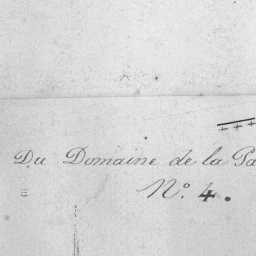 Du Domaine de la Pa
N.º 4.